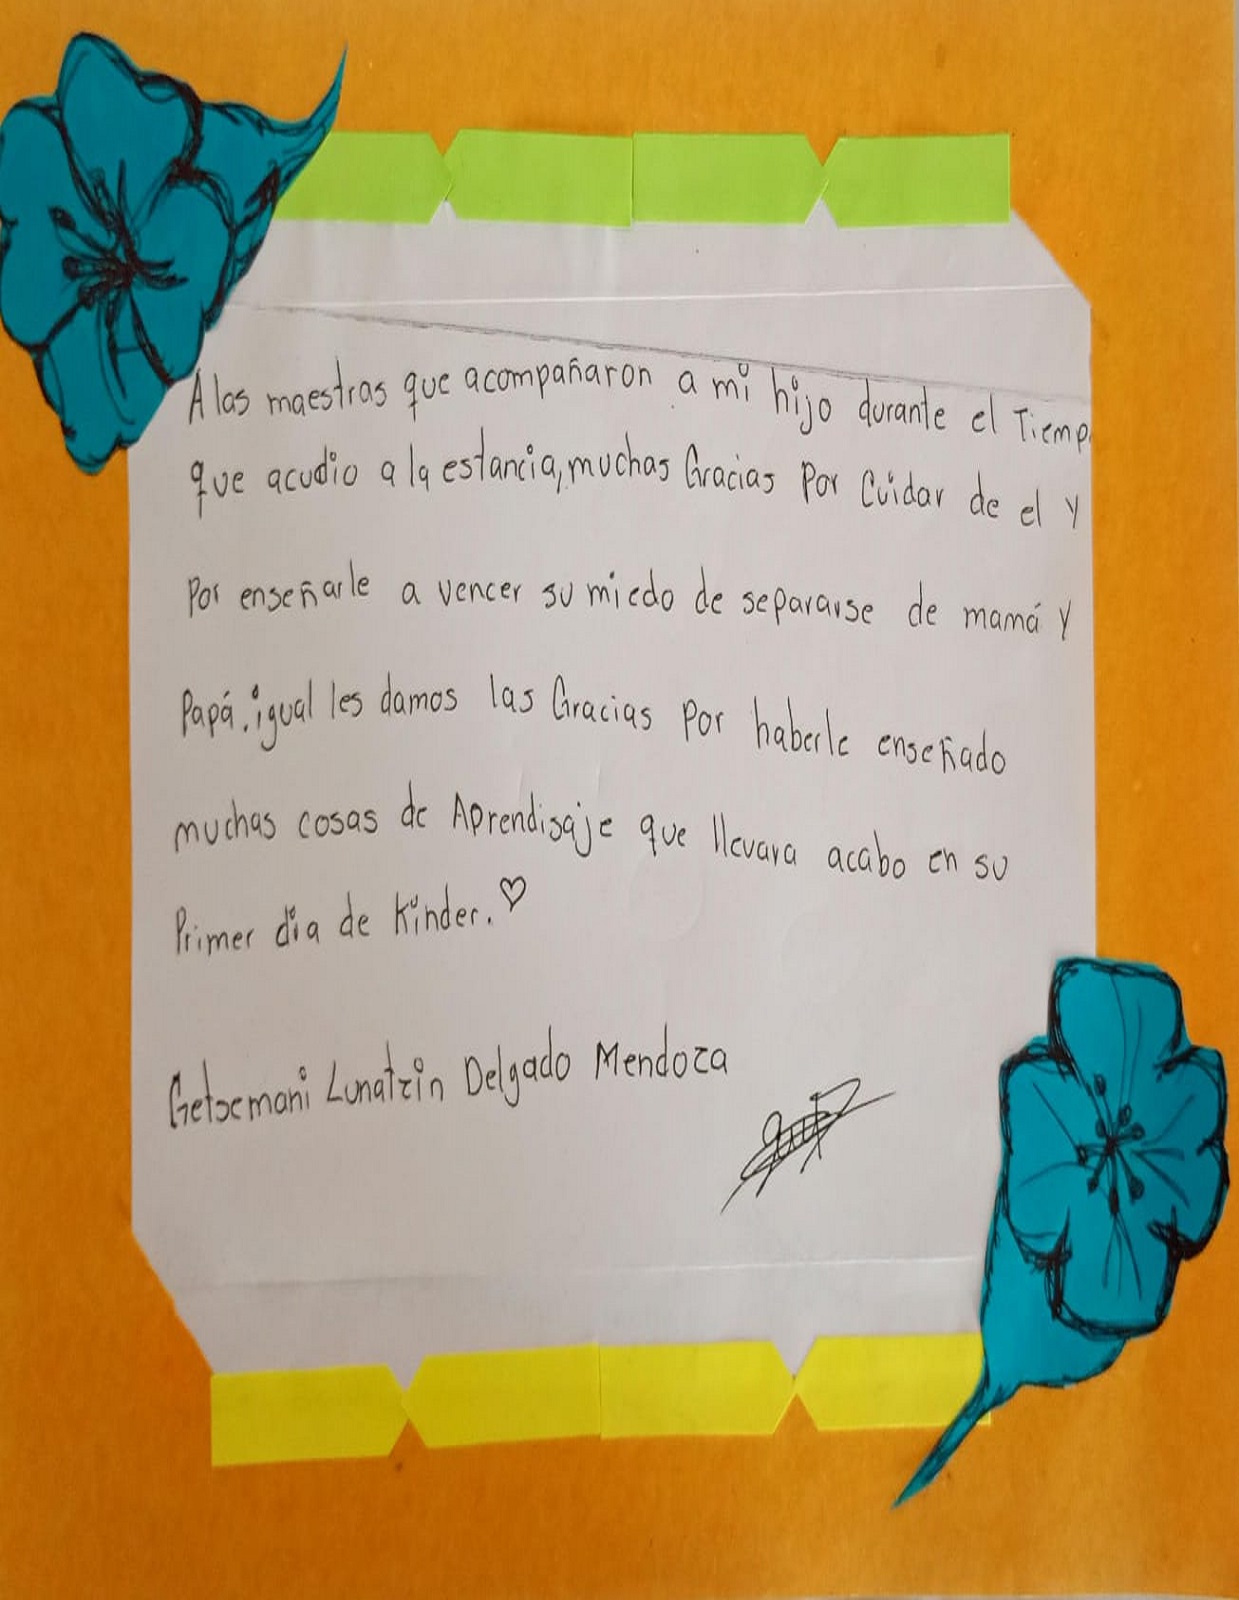 A las maestras que acompañaron a mi hijo durante el Tiemp
que acudio a la estancia, muchas Gracias Por Cuidar de el y
Por enseñarle a vencer su miedo de separarse de mamá y
Papá. igual les damos las Gracias Por haberle enseñado
muchas cosas de Aprendisaje que llevara acabo en su
Primer dia de Kinder. ♡
Getsemani Lunatzin Delgado Mendoza